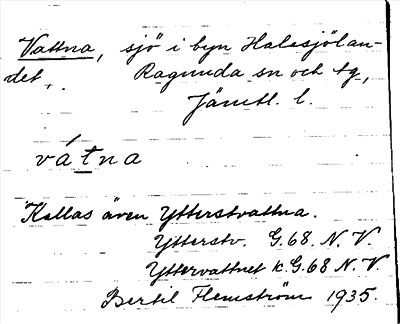 Vattna, sjö i byn Halasjölan-
det, Ragunda sn och tg,
Jämtl. l.
vátna
Kallas även Ytterstvattna.
Ytterstv. G.68. N.V.
Yttervattnet k. G.68 N.V.
Bertil Flemström 1935.